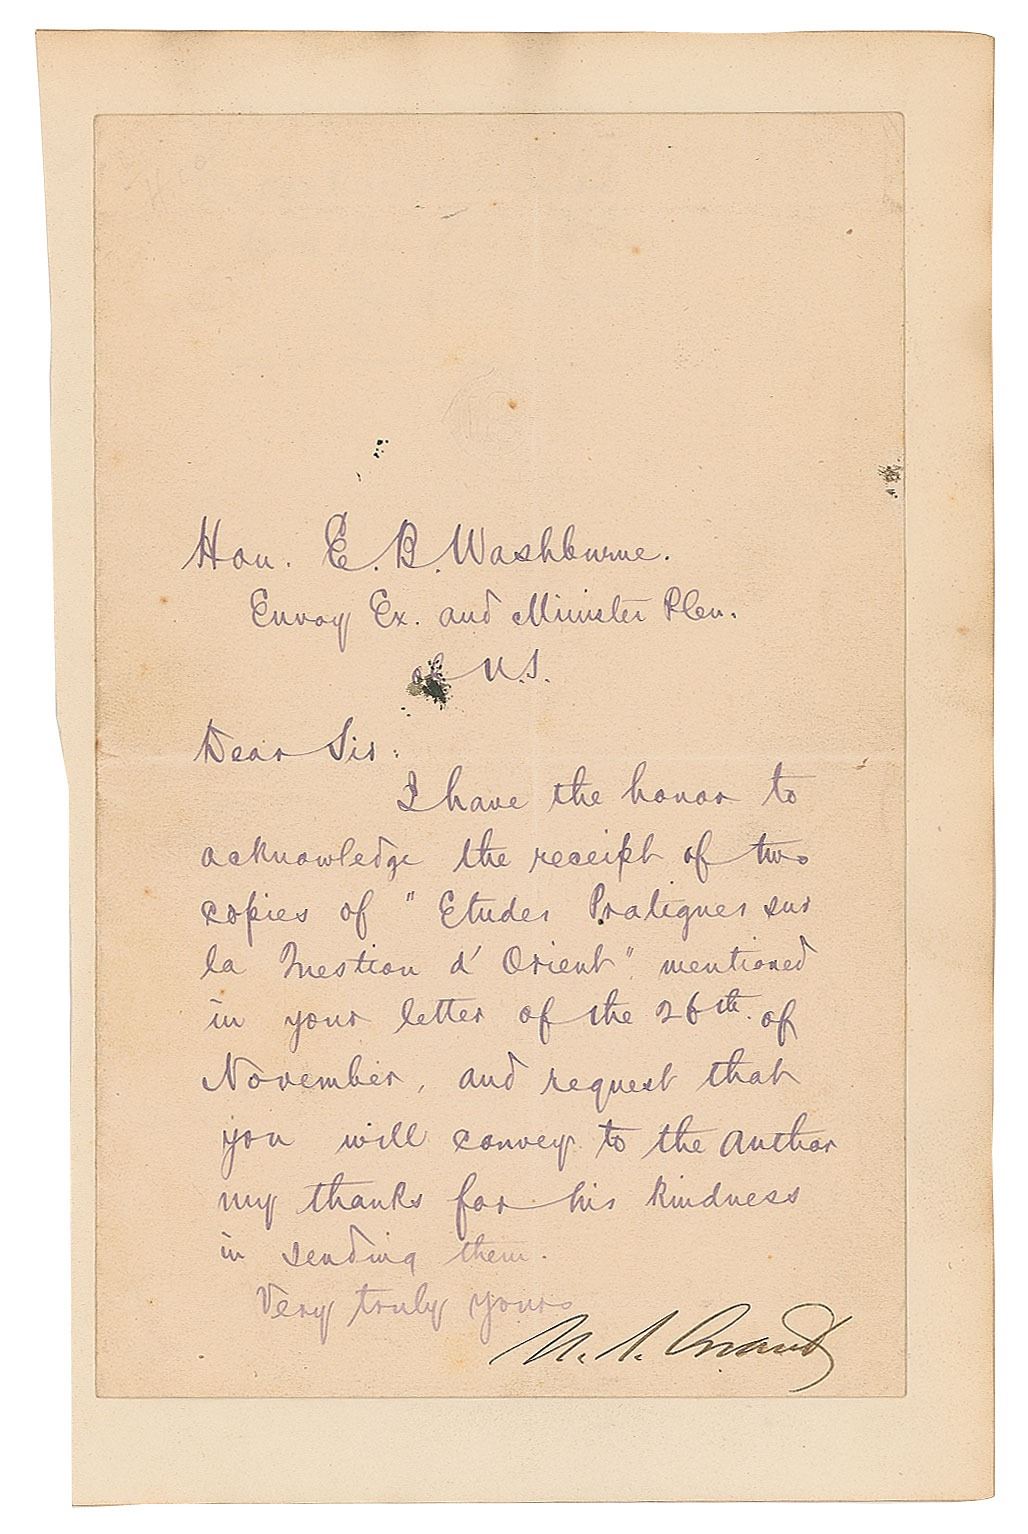 Hon. E. B. Washburne.
Envoy Ex. and Minister Plen.
of U.S.
Dear Sir:
I have the honor to
acknowledge the receipt of two
copies of "Etudes Pratiques sur
la Question d'Orient" mentioned
in your letter of the 26th. of
November, and request that
you will convey to the author
my thanks for his kindness
in sending them.
Very truly yours
U. S. Grant